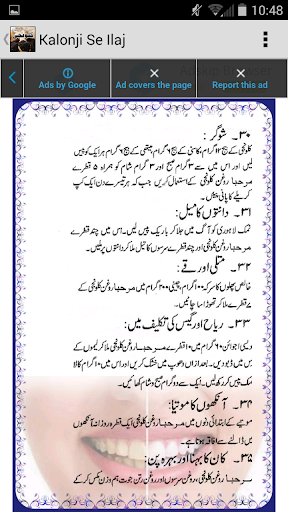 10:48
Kalonji Se Ilaj
Ads by Google
Ad covers the page
Report this ad
۳۰۔ شوگر:
کلونجی کے بیج ۱۲ گرام، کاسنی کے بیج ۶ گرام میتھی کے بیج ۶ گرام ہر ایک کو پیس
لیں اور اس میں سے ۳ گرام صبح اور ۳ گرام شام کو ہمراہ ۵ قطرے
مرحبا روغن کلونجی کے استعمال کریں جب کہ ہر تیسرے دن ایک کپ
کریلے کا پانی پیئیں۔
۳۱۔ دانتوں کا میل:
نمک لاہوری کو آگ میں جلا کر باریک پیس لیں۔ اور اس میں چند قطرے
مرحبا روغن کلونجی اور چند قطرے سرسوں کا تیل ملا کر دانتوں پر ملیں۔
۳۲۔ متلی اور قے:
خالص پھولوں کا سرکہ ۱۰۰ گرام، چینی ۲۰۰ گرام میں مرحبا روغن کلونجی
کے ۷ قطرے ملا کر تھوڑا سا چاٹیں۔
۳۳۔ ریاح اور گیس کی تکلیف میں:
دیسی اجوائن ۶۰ گرام میں ۱۰ قطرے مرحبا روغن کلونجی ملا کر لیموں کے رس
میں ڈبو دیں۔ بعد ازاں دھوپ میں خشک کریں اور اس میں کالا
نمک پیس کر رکھ لیں۔ ایک سے دو گرام صبح و شام کھائیں۔
۳۴۔ آنکھوں کا موتیا:
موتیے کے ابتدائی دنوں میں مرحبا روغن کلونجی ایک قطرہ روزانہ آنکھوں
میں ڈالنے سے افاقہ ہوتا ہے۔
۳۵۔ کان کا بہنا اور بہرہ پن:
مرحبا روغن کلونجی روغن سرسوں اور روغن زیتون ہم وزن مکس کر کے